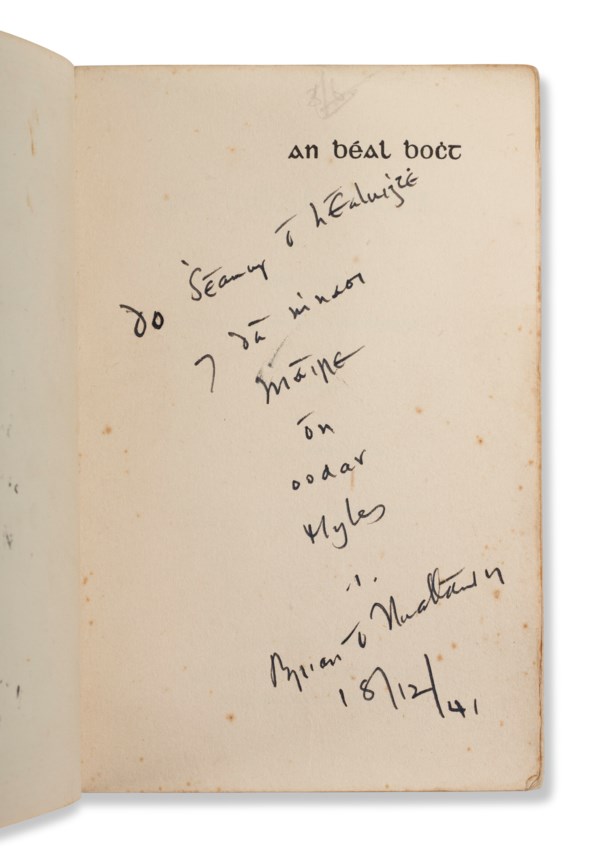 an béal boċt
Do Séamus Ó hÉaluiġṫe
⁊ dá mnaoi
Máire
ón
oodar
Myles
.i.
Brian Ó Nualláin
18/12/41